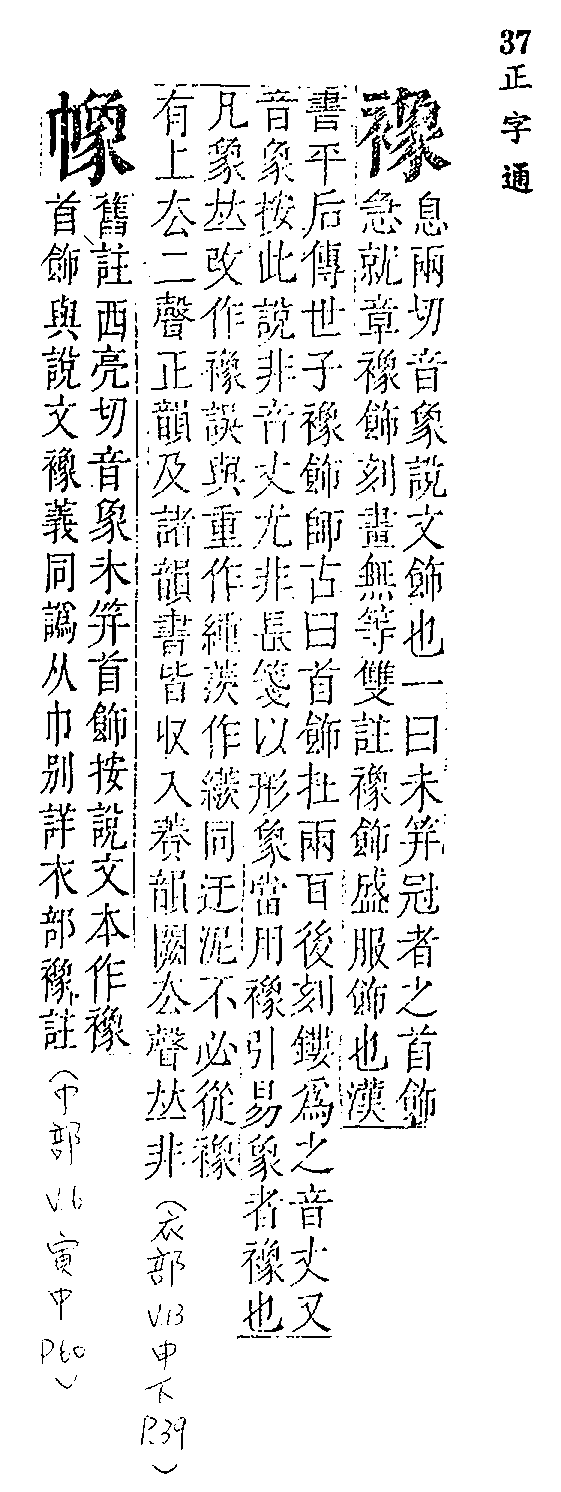 37正字通
襐
息兩切音象說文飾也一曰未筓冠者之首飾
急就章襐飾刻畫無等雙註襐飾盛服飾也漢
書平后傳世子襐飾師古曰首飾在兩耳後刻鏤爲之音丈又
音象按此說非音丈尤非長箋以形象當用襐引易象者襐也
凡象𠀤改作襐誤與重作緟茨作絘同迂泥不必從襐
有上厺二聲正韻及諸韻書皆收入養韻闕厺聲𠀤非
(衣部V.13申下P.39)
幧
舊註西亮切音象未筓首飾按說文本作襐
首飾與說文襐義同譌从巾別詳衣部襐註
(巾部V.6寅中P60)